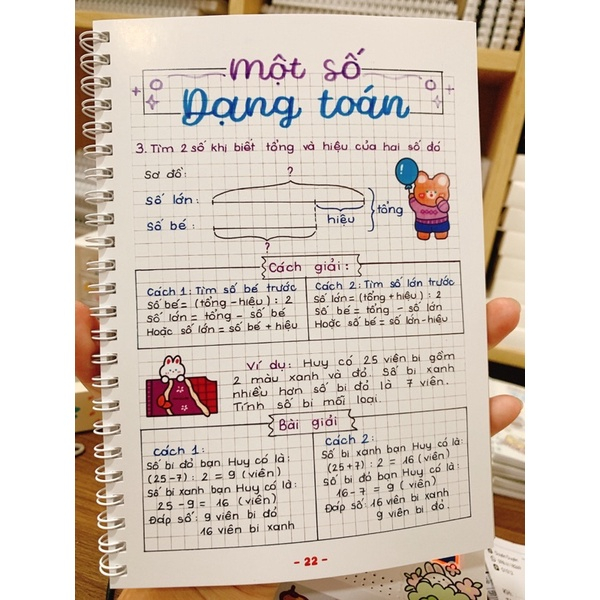 Một số
Dạng toán
3. Tìm 2 số khi biết tổng và hiệu của hai số đó
Sơ đồ:
?
Số lớn:
Số bé:
hiệu
tổng
?
Cách giải:
Cách 1: Tìm số bé trước
Số bé = (tổng - hiệu) : 2
Số lớn = tổng - số bé
Hoặc số lớn = số bé + hiệu
Cách 2: Tìm số lớn trước
Số lớn = (tổng + hiệu) : 2
Số bé = tổng - số lớn
Hoặc số bé = số lớn - hiệu
Ví dụ: Huy có 25 viên bi gồm
2 màu xanh và đỏ. Số bi xanh
nhiều hơn số bi đỏ là 7 viên.
Tính số bi mỗi loại.
Bài giải
Cách 1:
Số bi đỏ bạn Huy có là:
(25 - 7) : 2 = 9 (viên)
Số bi xanh bạn Huy có là:
25 - 9 = 16 (viên)
Đáp số: 9 viên bi đỏ
16 viên bi xanh
Cách 2:
Số bi xanh bạn Huy có là:
(25 + 7) : 2 = 16 (viên)
Số bi đỏ bạn Huy có là:
16 - 7 = 9 (viên)
Đáp số: 16 viên bi xanh
9 viên bi đỏ.
- 22 -